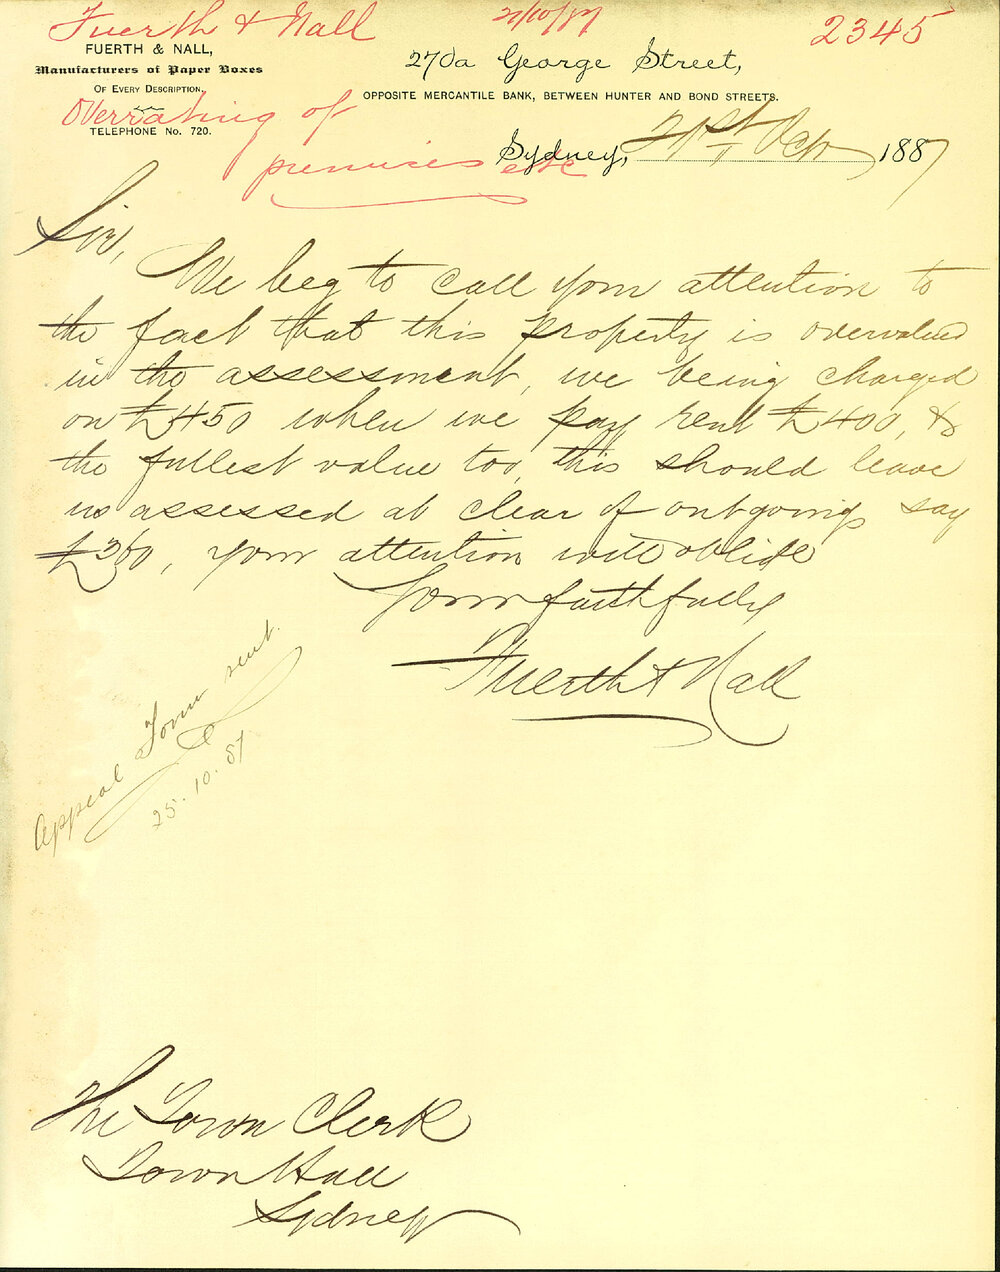 Fuerth & Nall
21/10/87
2345
FUERTH & NALL,
Manufacturers of Paper Boxes
OF EVERY DESCRIPTION.
TELEPHONE No. 720.
270a George Street,
OPPOSITE MERCANTILE BANK, BETWEEN HUNTER AND BOND STREETS.
Overrating of
premises etc
Sydney, 21st Oct 1887
Sir,
We beg to call your attention to
the fact that this property is overvalued
in the assessment, we being charged
on £450 when we pay rent £400, &
the fullest value too, this should leave
us assessed at clear of outgoings say
£360, your attention will oblige
Yours faithfully
Fuerth & Nall
Appeal Form sent.
25.10.87
The Town Clerk
Town Hall
Sydney